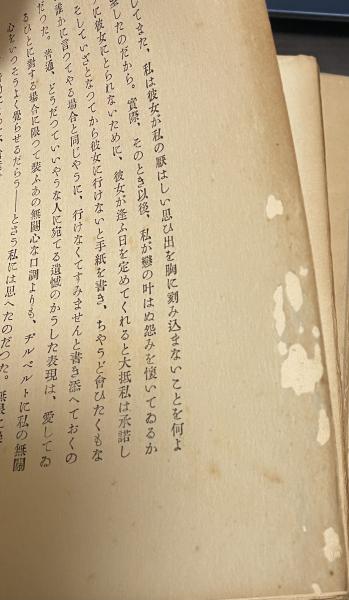 してまた、私は彼女が私の厭はしい思ひ出を胸に刻み込まないことを何よ
したのだから。實際、そのとき以後、私が戀の叶はぬ怨みを懷いてゐるか
に彼女にとられないために、彼女が逢ふ日を定めてくれると大抵私は承諾し
そしていざとなつてから彼女に行けないと手紙を書き、ちやうど會ひたくもな
誰かに言つてやる場合と同じやうに、行けなくてすみませんと書き添へておくの
だつた。普通、どうだつていいやうな人に宛てる遺憾のかうした表現は、愛してゐ
るひとに對する場合に限つて裝ふあの無關心な口調よりも、ヂルベルトに私の無關
心をいつそうよく覺らせるだらう——とさう私には思へたのだつた。